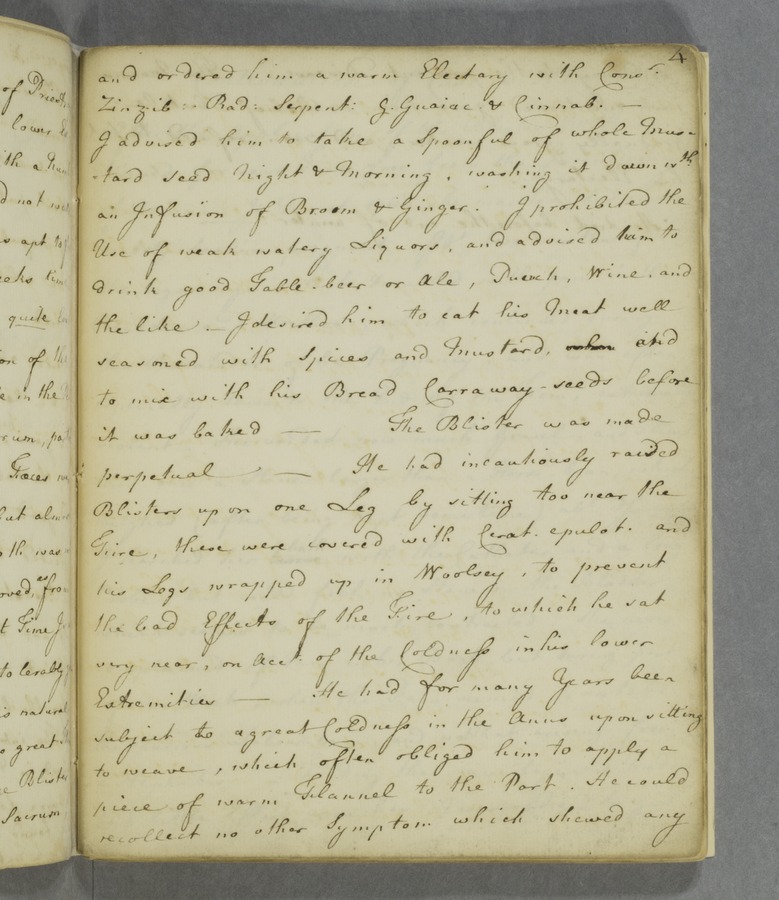 of Priest.
lower
ith a
d not
s apt to
eeks
quite
on of th
e in the
rum, pa
Fæces
but alm
th was
oved, as fro
t Time J
tolerably
s natural
o great
e Blist
Sacrum
4
and ordered him a warm Electary with Consr.
Zinzib: Rad: Serpent: G. Guaiac. & Cinnab. —
I advised him to take a Spoonful of whole Mus-
-tard seed Night & Morning, washing it down wth
an Infusion of Broom & Ginger. I prohibited the
Use of weak watery Liquors, and advised him to
drink good Table-beer or Ale, Punch, Wine, and
the like — I desired him to eat his Meat well
seasoned with Spices and Mustard, when and
to mix with his Bread Carraway-seeds before
it was baked — The Blister was made
perpetual — He had incautiously raised
Blisters upon one Leg by sitting too near the
Fire, these were covered with Cerat. epulot. and
his Legs wrapped up in Woolsey, to prevent
the bad Effects of the Fire, to which he sat
very near, on Acct. of the Coldness in his lower
Extremities — He had for many Years been
subject to a great Coldness in the Anus upon sitting
to weave, which often obliged him to apply a
piece of warm Flannel to the Part. He could
recollect no other Symptom which shewed any